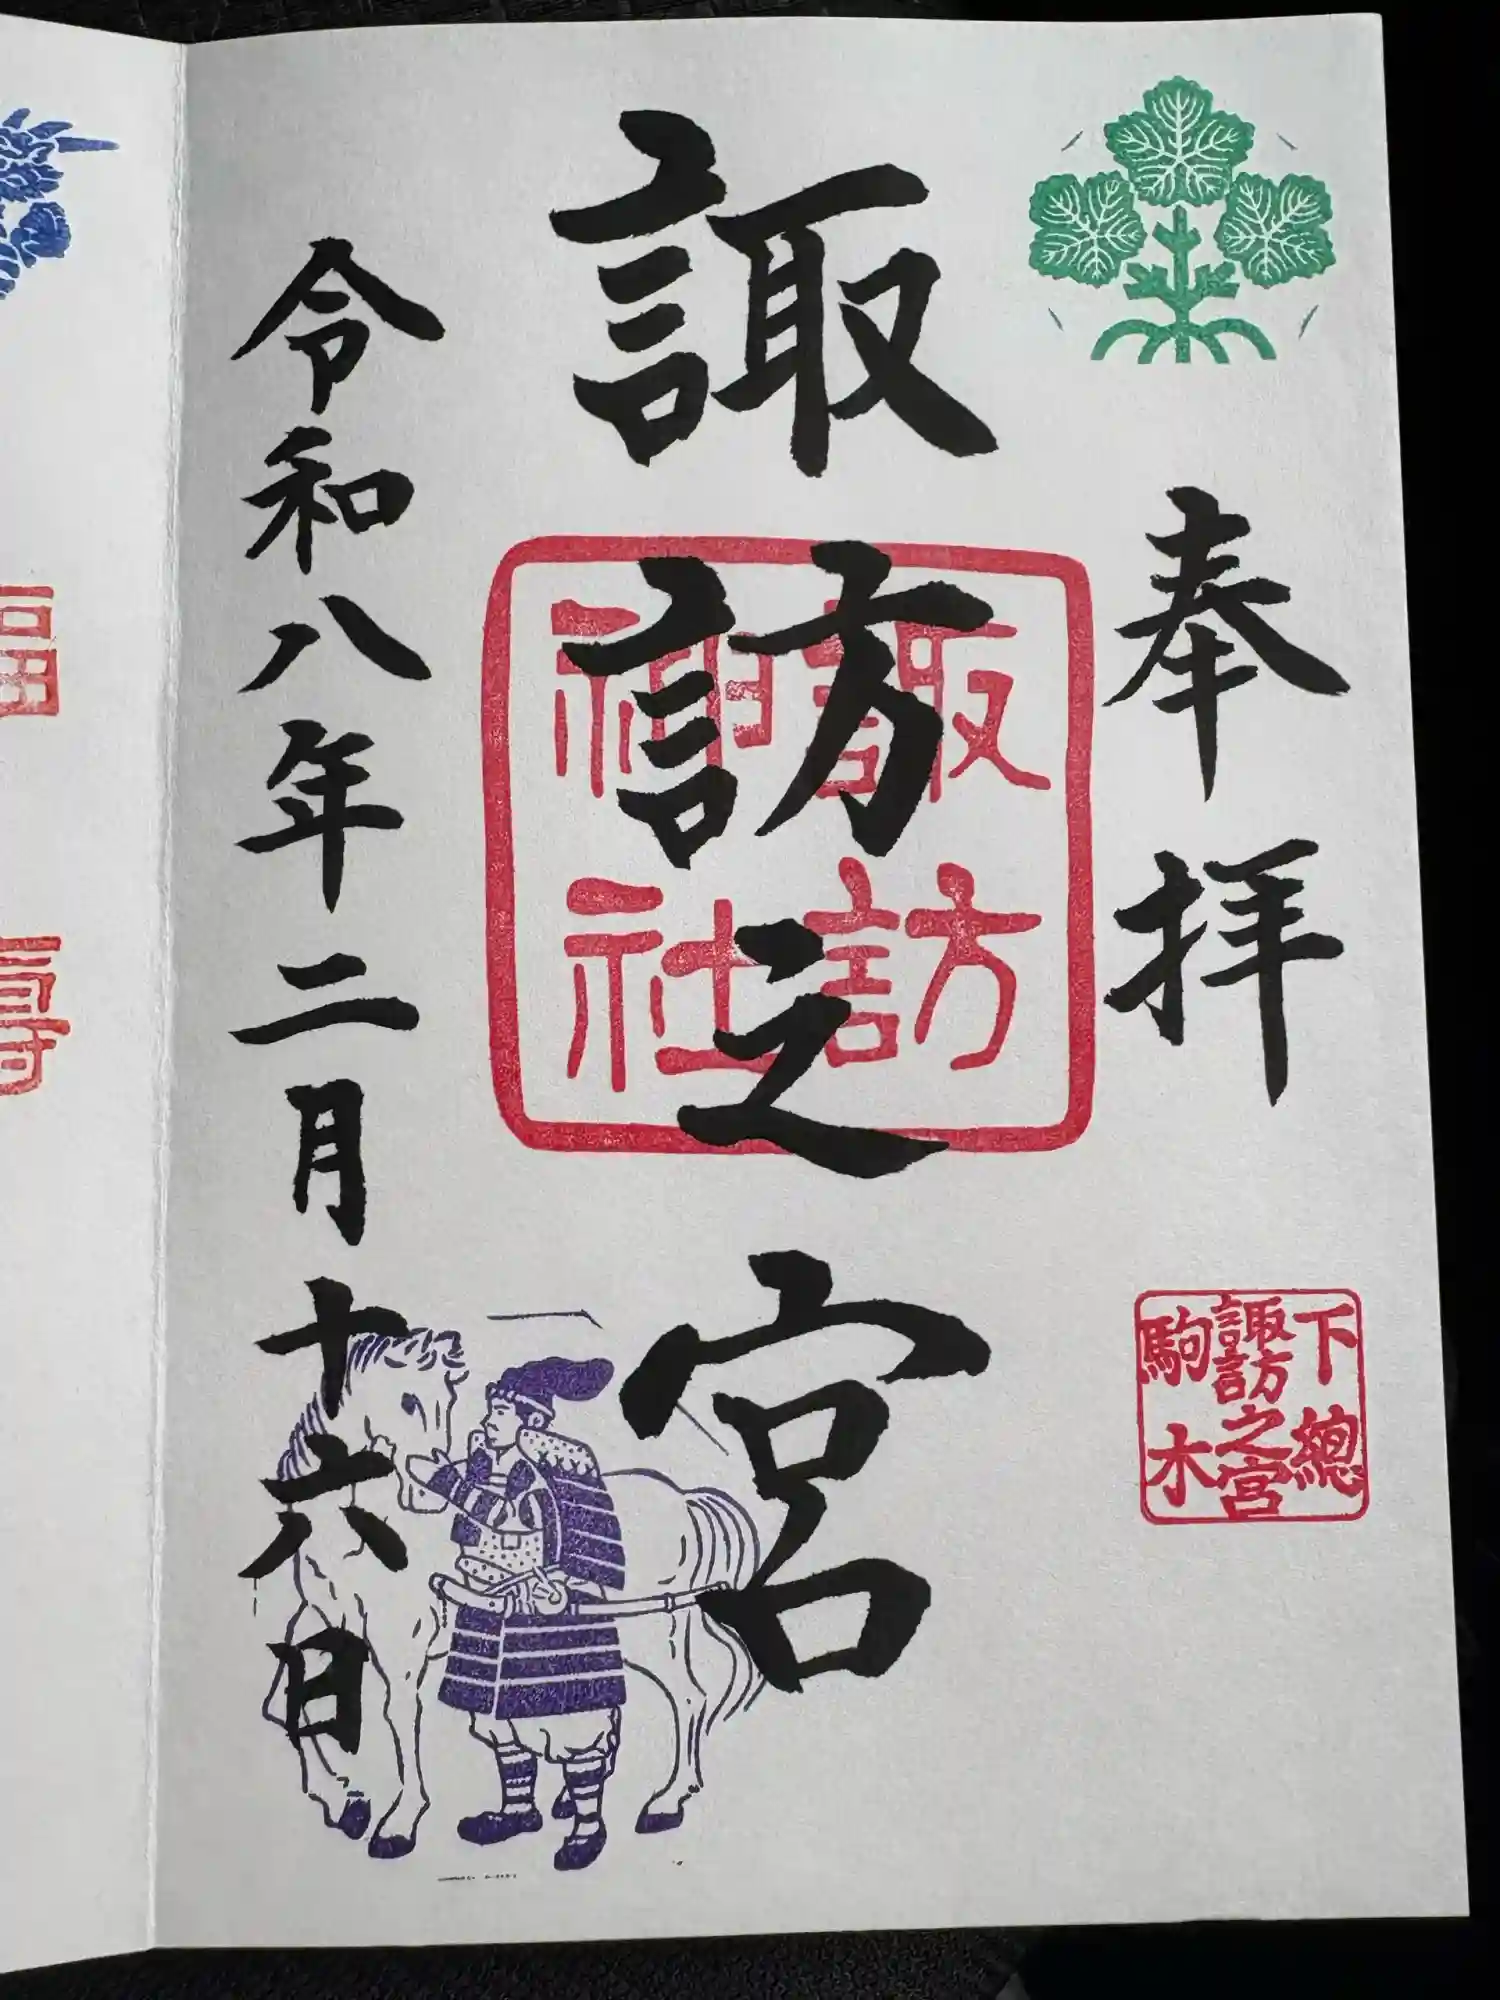 奉拝
下總
諏訪之宮
駒木
諏訪之宮
諏訪
神社
令和八年二月十六日
壽